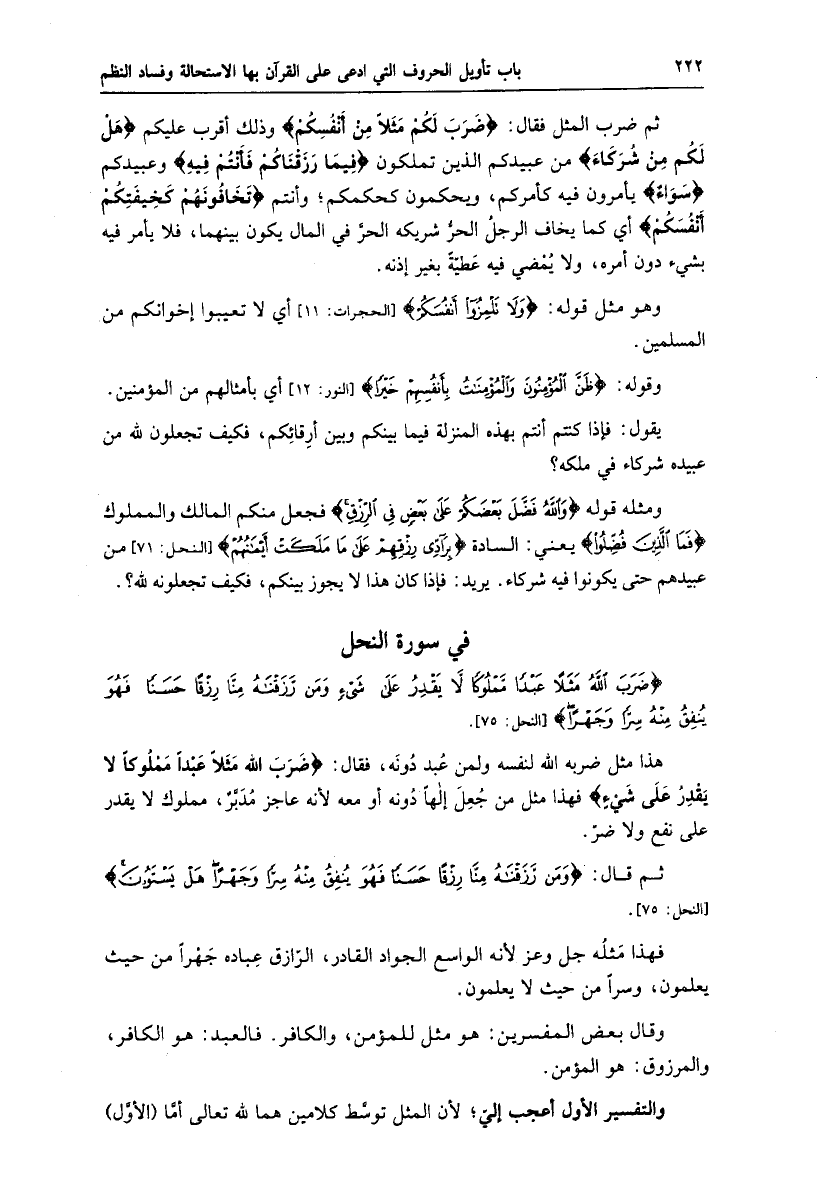 ٢٢٢
باب تأويل الحروف التي ادعى على القرآن بها الاستحالة وفساد النظم
ثم ضرب المثل فقال: ﴿ضَرَبَ لَكُمْ مَثَلاً مِنْ أَنْفُسِكُمْ﴾ وذلك أقرب عليكم ﴿هَلْ
لَكُم مِنْ شُرَكَاءَ﴾ من عبيدكم الذين تملكون ﴿فِيمَا رَزَقْنَاكُمْ فَأَنْتُمْ فِيهِ﴾ وعبيدكم
﴿سَوَاءٌ﴾ يأمرون فيه كأمركم، ويحكمون كحكمكم؛ وأنتم ﴿تَخَافُونَهُمْ كَخِيفَتِكُمْ
أَنْفُسَكُمْ﴾ أي كما يخاف الرجلُ الحرُّ شريكه الحرَّ في المال يكون بينهما، فلا يأمر فيه
بشيء دون أمره، ولا يُمْضي فيه عَطيّةً بغير إذنه.
وهو مثل قوله: ﴿وَلَا تَلْمِزُوٓا۟ أَنفُسَكُمْ﴾ [الحجرات: ١١] أي لا تعيبوا إخوانكم من
المسلمين.
وقوله: ﴿ظَنَّ ٱلْمُؤْمِنُونَ وَٱلْمُؤْمِنَٰتُ بِأَنفُسِهِمْ خَيْرًا﴾ [النور: ١٢] أي بأمثالهم من المؤمنين.
يقول: فإذا كنتم أنتم بهذه المنزلة فيما بينكم وبين أرِقائِكم، فكيف تجعلون لله من
عبيده شركاء في ملكه؟
ومثله قوله ﴿وَٱللَّهُ فَضَّلَ بَعْضَكُمْ عَلَىٰ بَعْضٍ فِى ٱلرِّزْقِ ۚ﴾ فجعل منكم المالك والمملوك
﴿فَمَا ٱلَّذِينَ فُضِّلُوا۟﴾ يعني: السادة ﴿بِرَآدِّى رِزْقِهِمْ عَلَىٰ مَا مَلَكَتْ أَيْمَٰنُهُمْ﴾ [النحل: ٧١] من
عبيدهم حتى يكونوا فيه شركاء. يريد: فإذا كان هذا لا يجوز بينكم، فكيف تجعلونه لله؟.
في سورة النحل
﴿ضَرَبَ ٱللَّهُ مَثَلًا عَبْدًا مَّمْلُوكًا لَّا يَقْدِرُ عَلَىٰ شَىْءٍ وَمَن رَّزَقْنَٰهُ مِنَّا رِزْقًا حَسَنًا فَهُوَ
يُنفِقُ مِنْهُ سِرًّا وَجَهْرًا ۖ﴾ [النحل: ٧٥].
هذا مثل ضربه الله لنفسه ولمن عُبد دُونَه، فقال: ﴿ضَرَبَ الله مَثَلاً عَبْداً مَمْلُوكاً لا
يَقْدِرُ عَلَى شَيْءٍ﴾ فهذا مثل من جُعِلَ إلٰهاً دُونه أو معه لأنه عاجز مُدَبَّرٌ، مملوك لا يقدر
على نفع ولا ضرّ.
ثم قال: ﴿وَمَن رَّزَقْنَٰهُ مِنَّا رِزْقًا حَسَنًا فَهُوَ يُنفِقُ مِنْهُ سِرًّا وَجَهْرًا ۖ هَلْ يَسْتَوُۥنَ ۚ﴾
[النحل: ٧٥].
فهذا مَثلُه جل وعز لأنه الواسع الجواد القادر، الرّازق عِباده جَهْراً من حيث
يعلمون، وسراً من حيث لا يعلمون.
وقال بعض المفسرين: هو مثل للمؤمن، والكافر. فالعبد: هو الكافر،
والمرزوق: هو المؤمن.
والتفسير الأول أعجب إليّ؛ لأن المثل توسَّط كلامين هما لله تعالى أمَّا (الأوَّل)